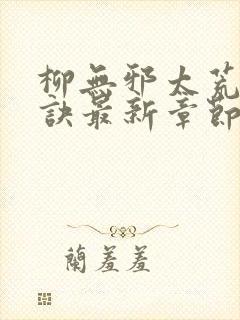 柳無邪太荒
訣最新章節
蘭羞羞